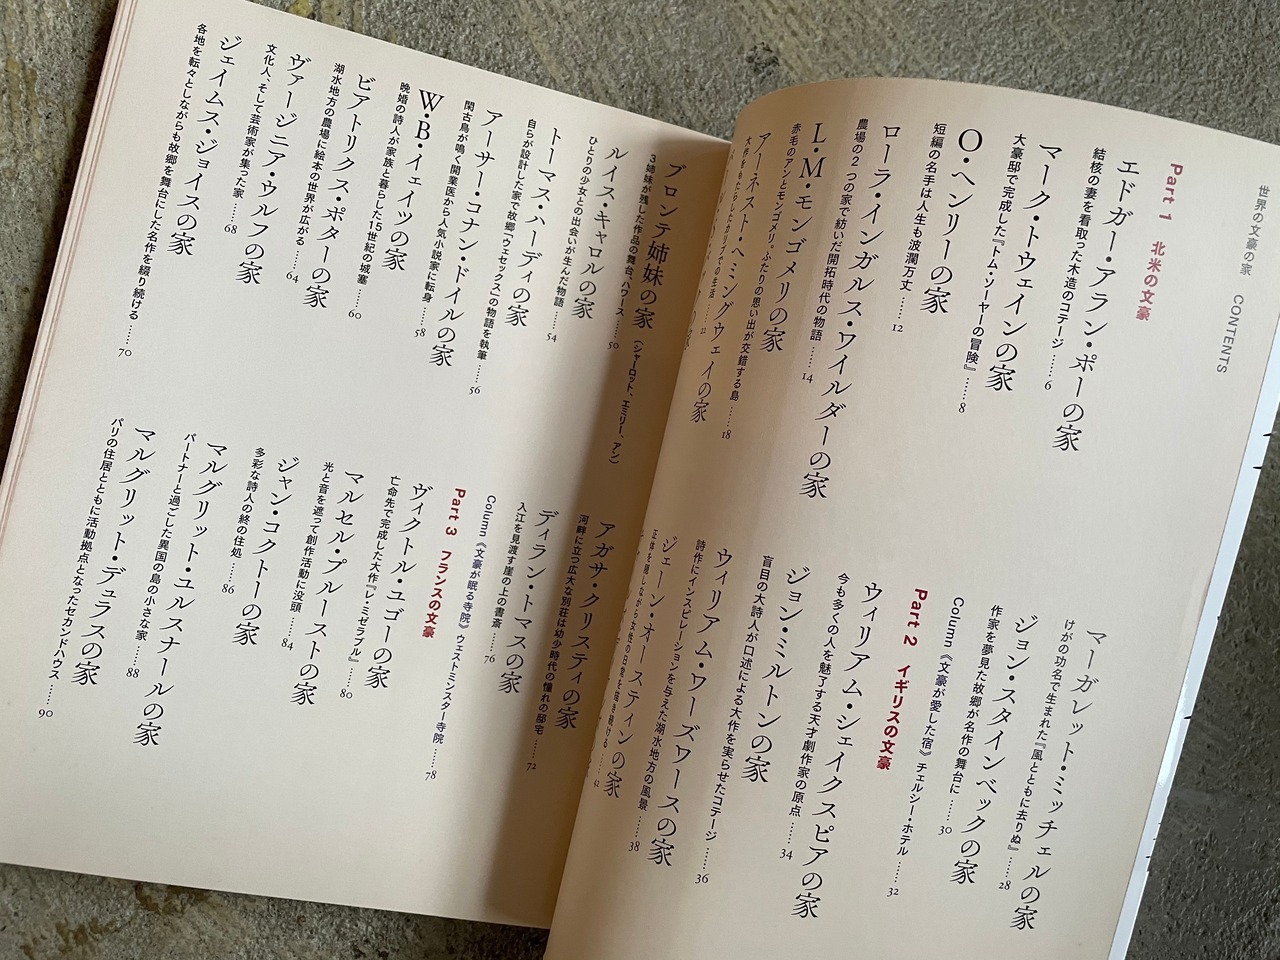 世界の文豪の家 CONTENTS
Part 1 北米の文豪
エドガー・アラン・ポーの家
結核の妻を看取った木造のコテージ……6
マーク・トウェインの家
大豪邸で完成した『トム・ソーヤーの冒険』……8
O・ヘンリーの家
短編の名手は人生も波瀾万丈……12
ローラ・インガルス・ワイルダーの家
農場の2つの家で紡いだ開拓時代の物語……14
L・M・モンゴメリの家
赤毛のアンとモンゴメリ。ふたりの思い出が交錯する島……18
アーネスト・ヘミングウェイの家
大作をもたらしたカリブでの生活……22
マーガレット・ミッチェルの家
けがの功名で生まれた『風とともに去りぬ』……28
ジョン・スタインベックの家
作家を夢見た故郷が名作の舞台に……30
Column《文豪が愛した宿》チェルシー・ホテル……32
Part 2 イギリスの文豪
ウィリアム・シェイクスピアの家
今も多くの人を魅了する天才劇作家の原点……34
ジョン・ミルトンの家
盲目の大詩人が口述による大作を実らせたコテージ……36
ウィリアム・ワーズワースの家
詩作にインスピレーションを与えた湖水地方の風景……38
ジェーン・オースティンの家
正体を隠しながら女性の日常を描き続ける……42
ブロンテ姉妹の家(シャーロット、エミリー、アン)
3姉妹が残した作品の舞台、ハワース……50
ルイス・キャロルの家
ひとりの少女との出会いが生んだ物語……54
トーマス・ハーディの家
自らが設計した家で故郷「ウェセックス」の物語を執筆……56
アーサー・コナン・ドイルの家
閑古鳥が鳴く開業医から人気小説家に転身……58
W・B・イェイツの家
晩婚の詩人が家族と暮らした15世紀の城塞……60
ビアトリクス・ポターの家
湖水地方の農場に絵本の世界が広がる……64
ヴァージニア・ウルフの家
文化人、そして芸術家が集った家……68
ジェイムス・ジョイスの家
各地を転々としながらも故郷を舞台にした名作を綴り続ける……70
アガサ・クリスティの家
河畔に立つ広大な別荘は幼少時代の憧れの邸宅……72
ディラン・トマスの家
入江を見渡す崖の上の書斎……76
Column《文豪が眠る寺院》ウェストミンスター寺院……78
Part 3 フランスの文豪
ヴィクトル・ユゴーの家
亡命先で完成した大作『レ・ミゼラブル』……80
マルセル・プルーストの家
光と音を遮って創作活動に没頭……84
ジャン・コクトーの家
多彩な詩人の終の住処……86
マルグリット・ユルスナールの家
パートナーと過ごした異国の島の小さな家……88
マルグリット・デュラスの家
パリの住居とともに活動拠点となったセカンドハウス……90